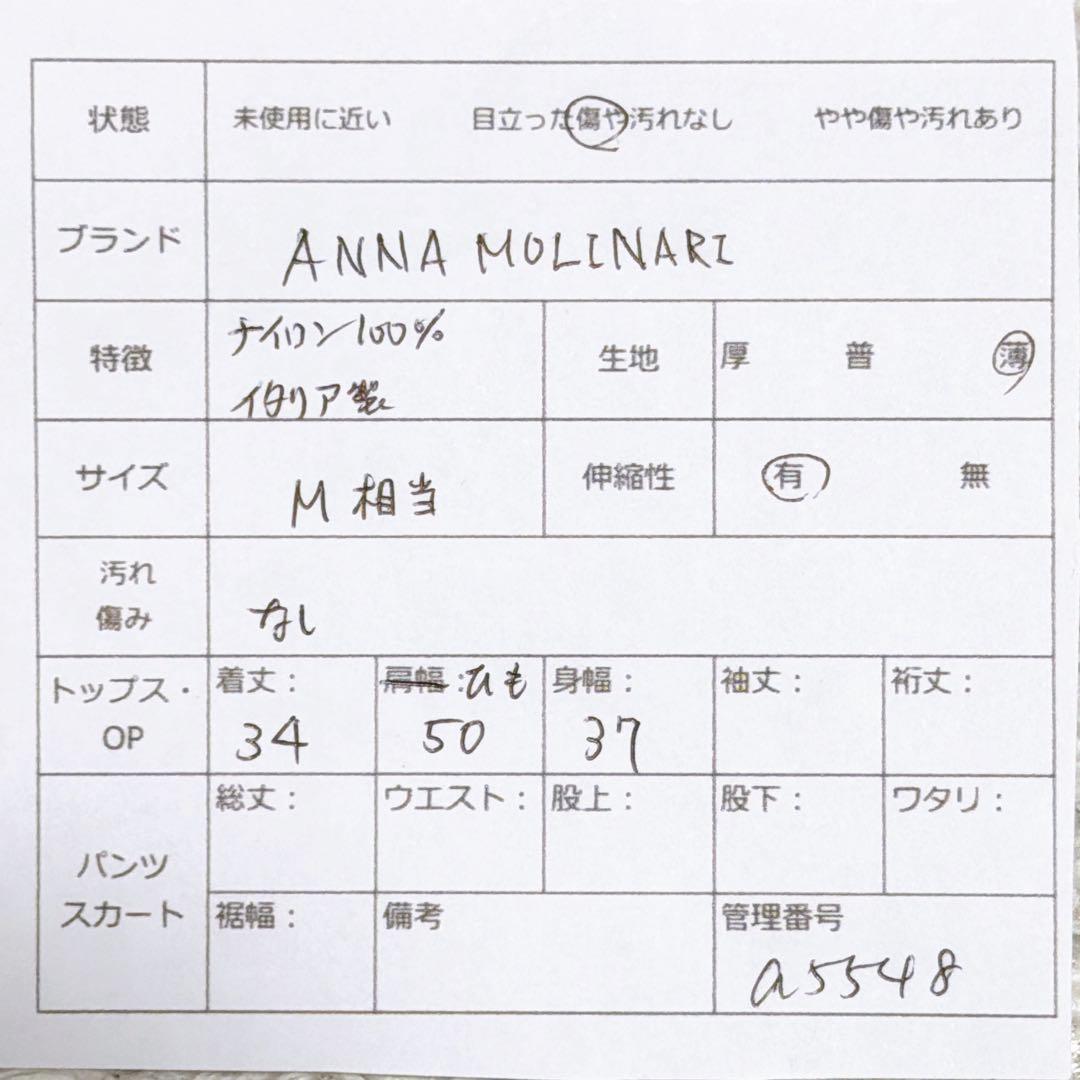 状態 未使用に近い 目立った傷や汚れなし やや傷や汚れあり
ブランド ANNA MOLINARI
特徴 ナイロン100% 生地 厚 普 薄
イタリア製
サイズ M相当 伸縮性 有 無
汚れ
傷み なし
トップス・ 着丈: 肩幅:ひも 身幅: 袖丈: 裄丈:
OP 34 50 37
総丈: ウエスト: 股上: 股下: ワタリ:
パンツ
スカート 裾幅: 備考 管理番号
a5548